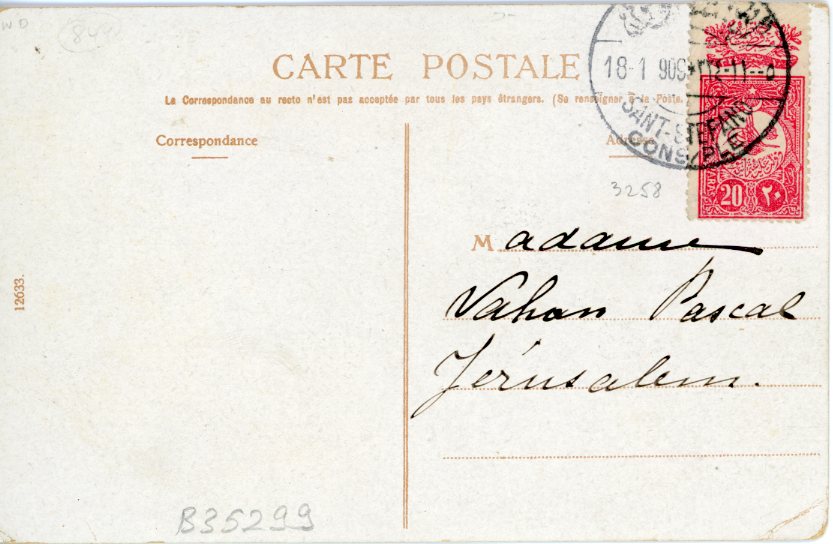 WD
844
CARTE POSTALE
La Correspondance au recto n'est pas acceptée par tous les pays étrangers. (Se renseigner à la Poste.
Correspondance
18-1 909
SANT-STEFANO
CONS/PLE
20 ٢٠
PARA
3258
Madame
Vahan Pascal
Jérusalem.
12633.
B35299